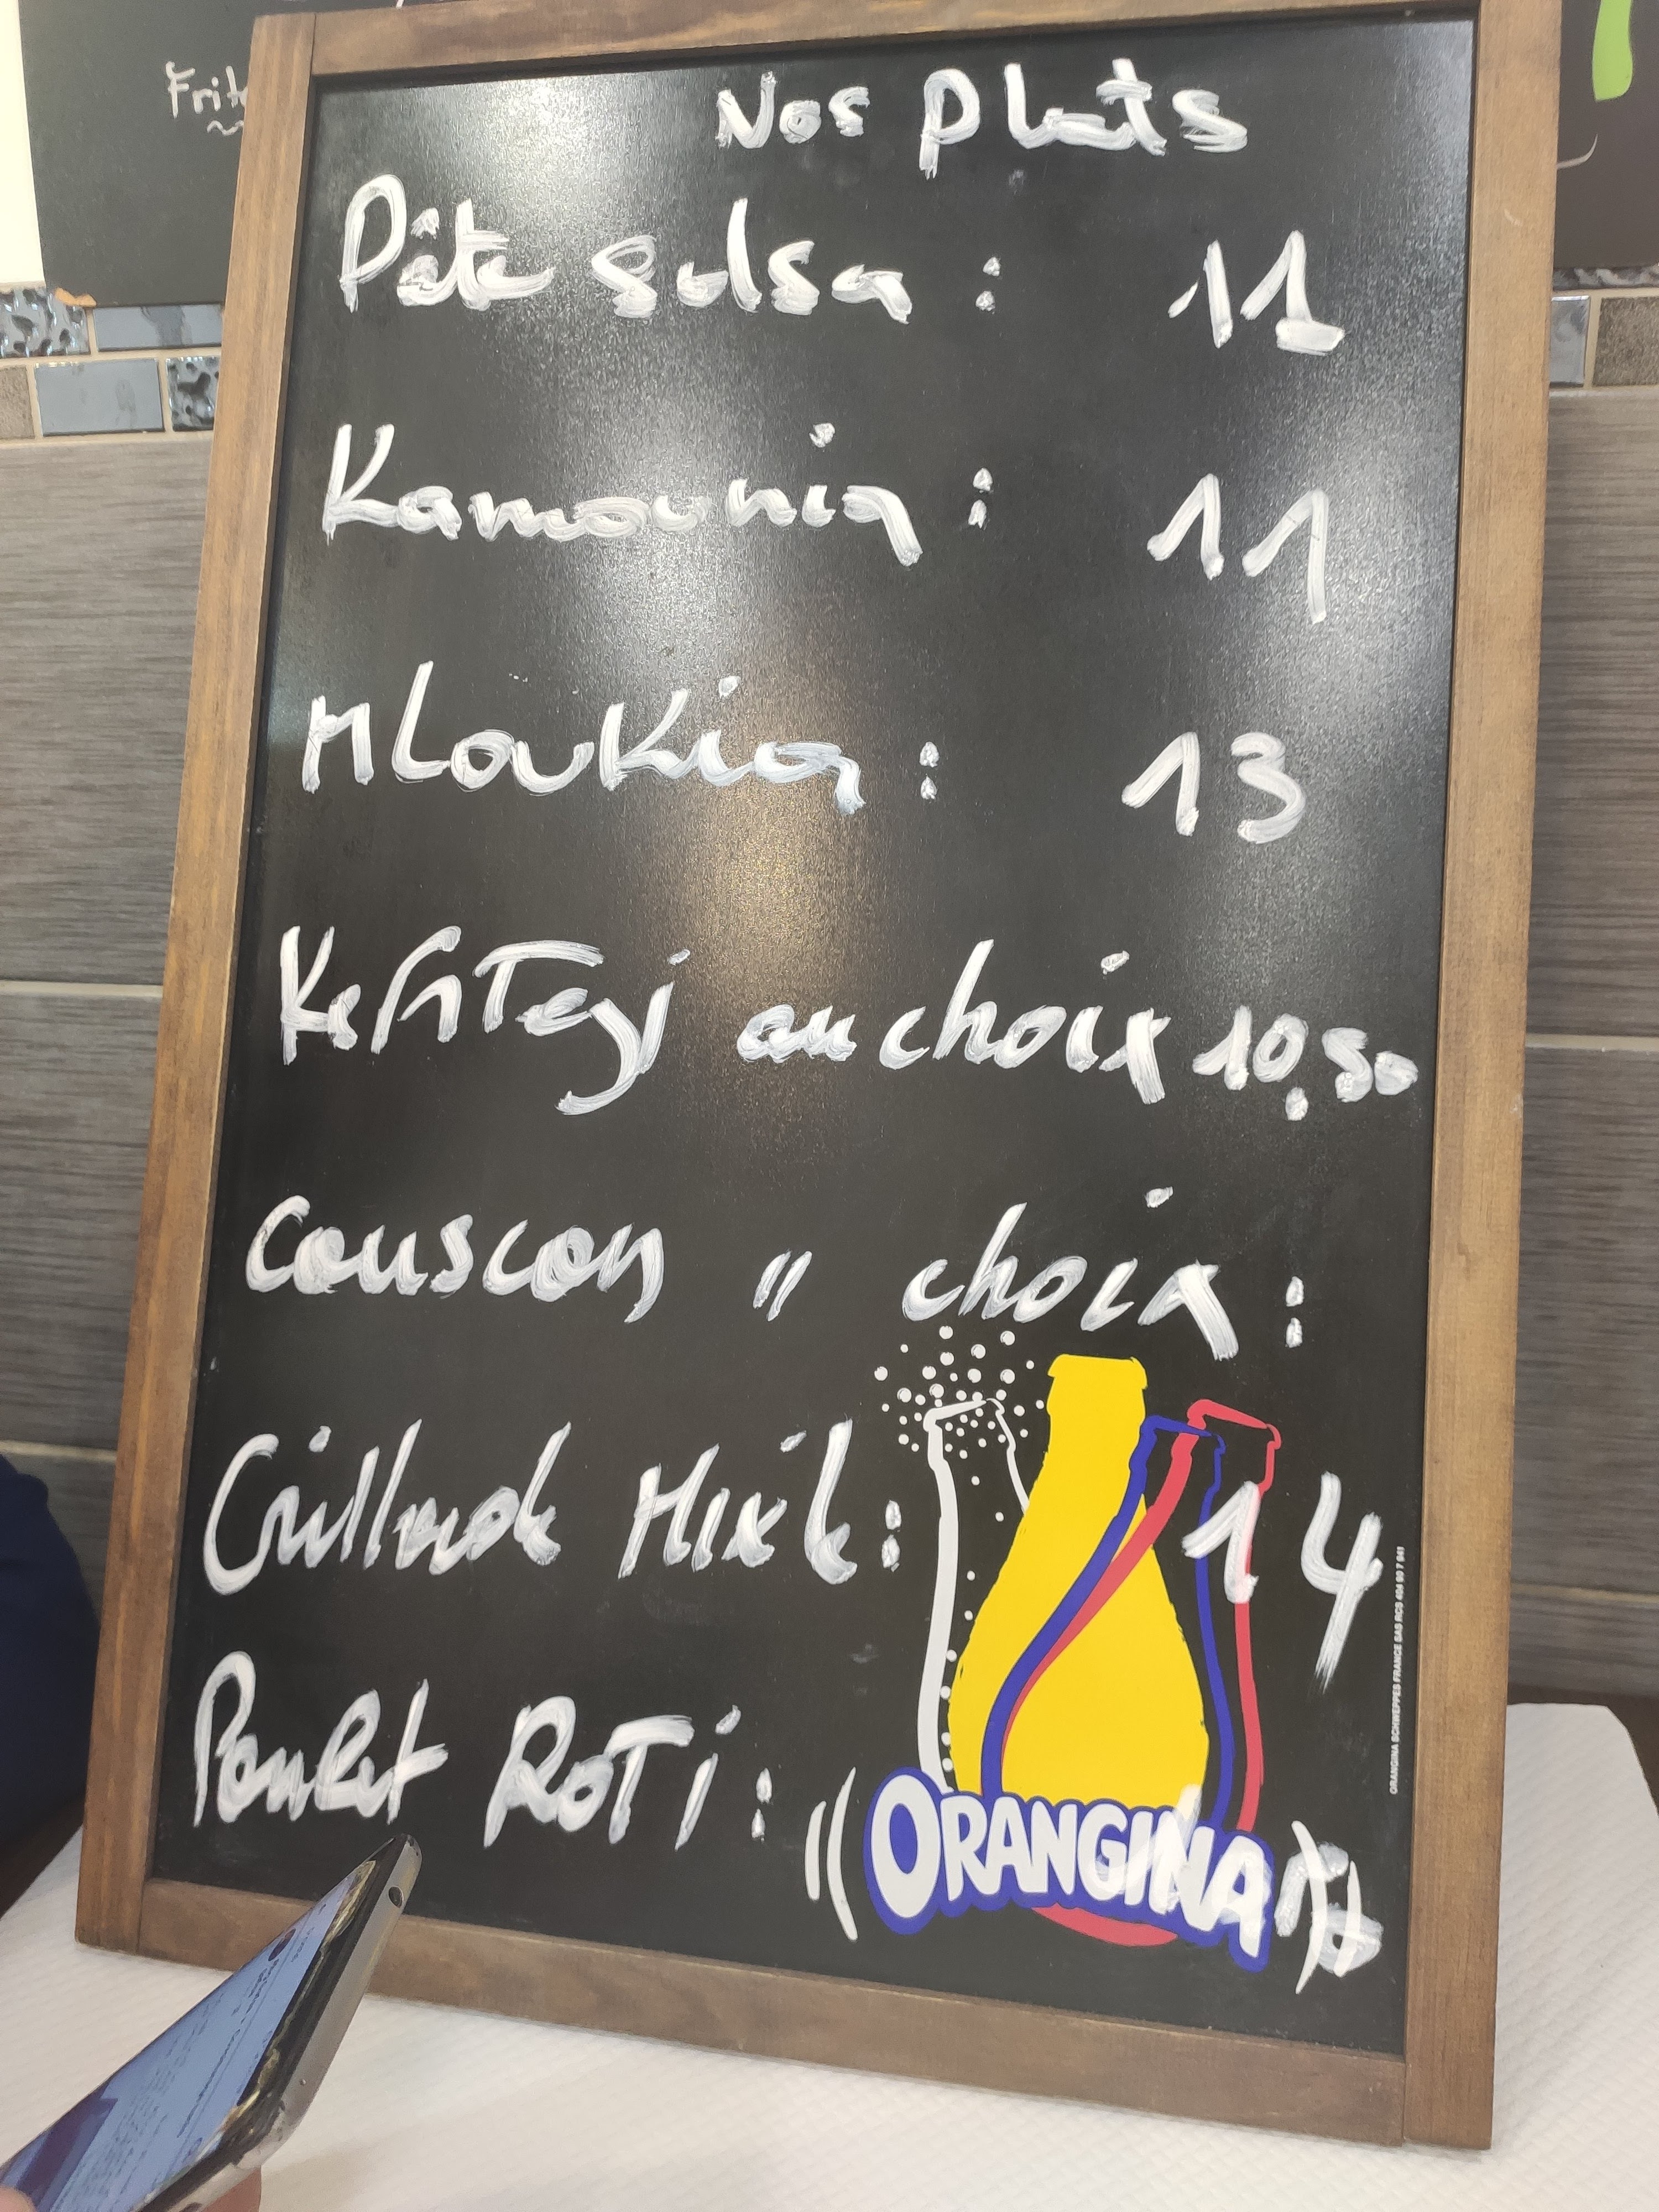 Frite
Nos Plats
Pâte Salsa : 11
Kamounia : 11
Mloukia : 13
KefiTeji au choix 10,50
Couscous " choix :
Grillade Mixte : 14
Poulet RoTi :
ORANGINA
ORANGINA SCHWEPPES FRANCE SAS RCS 404 907 941